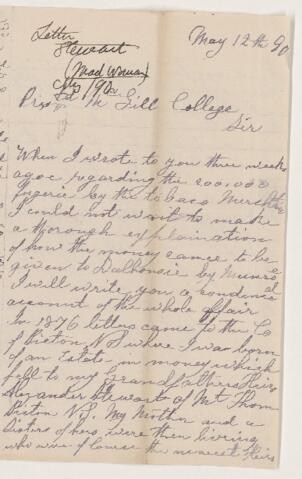 Letter
Stewart
(Mad Woman)
May 12th 90
Mc Gill College
Sir
When I wrote to you three weeks
agoe regarding the 200,000
by the tobaco Merchtnt
I could not wait to make
a thorough explaination
of how the money came to be
given to Dalhousie by Munroe
I will write you a condence
account of the whole affair
In 1876 letters came to the Co
of Picton N S where I was born
of an Estate in money which
fell to my Grandfathers Heirs
Alexander Stewart of Mt Thom
Picton N.S. My Mother and a
Sisters of hers were then living
who were of course the nearest Heirs